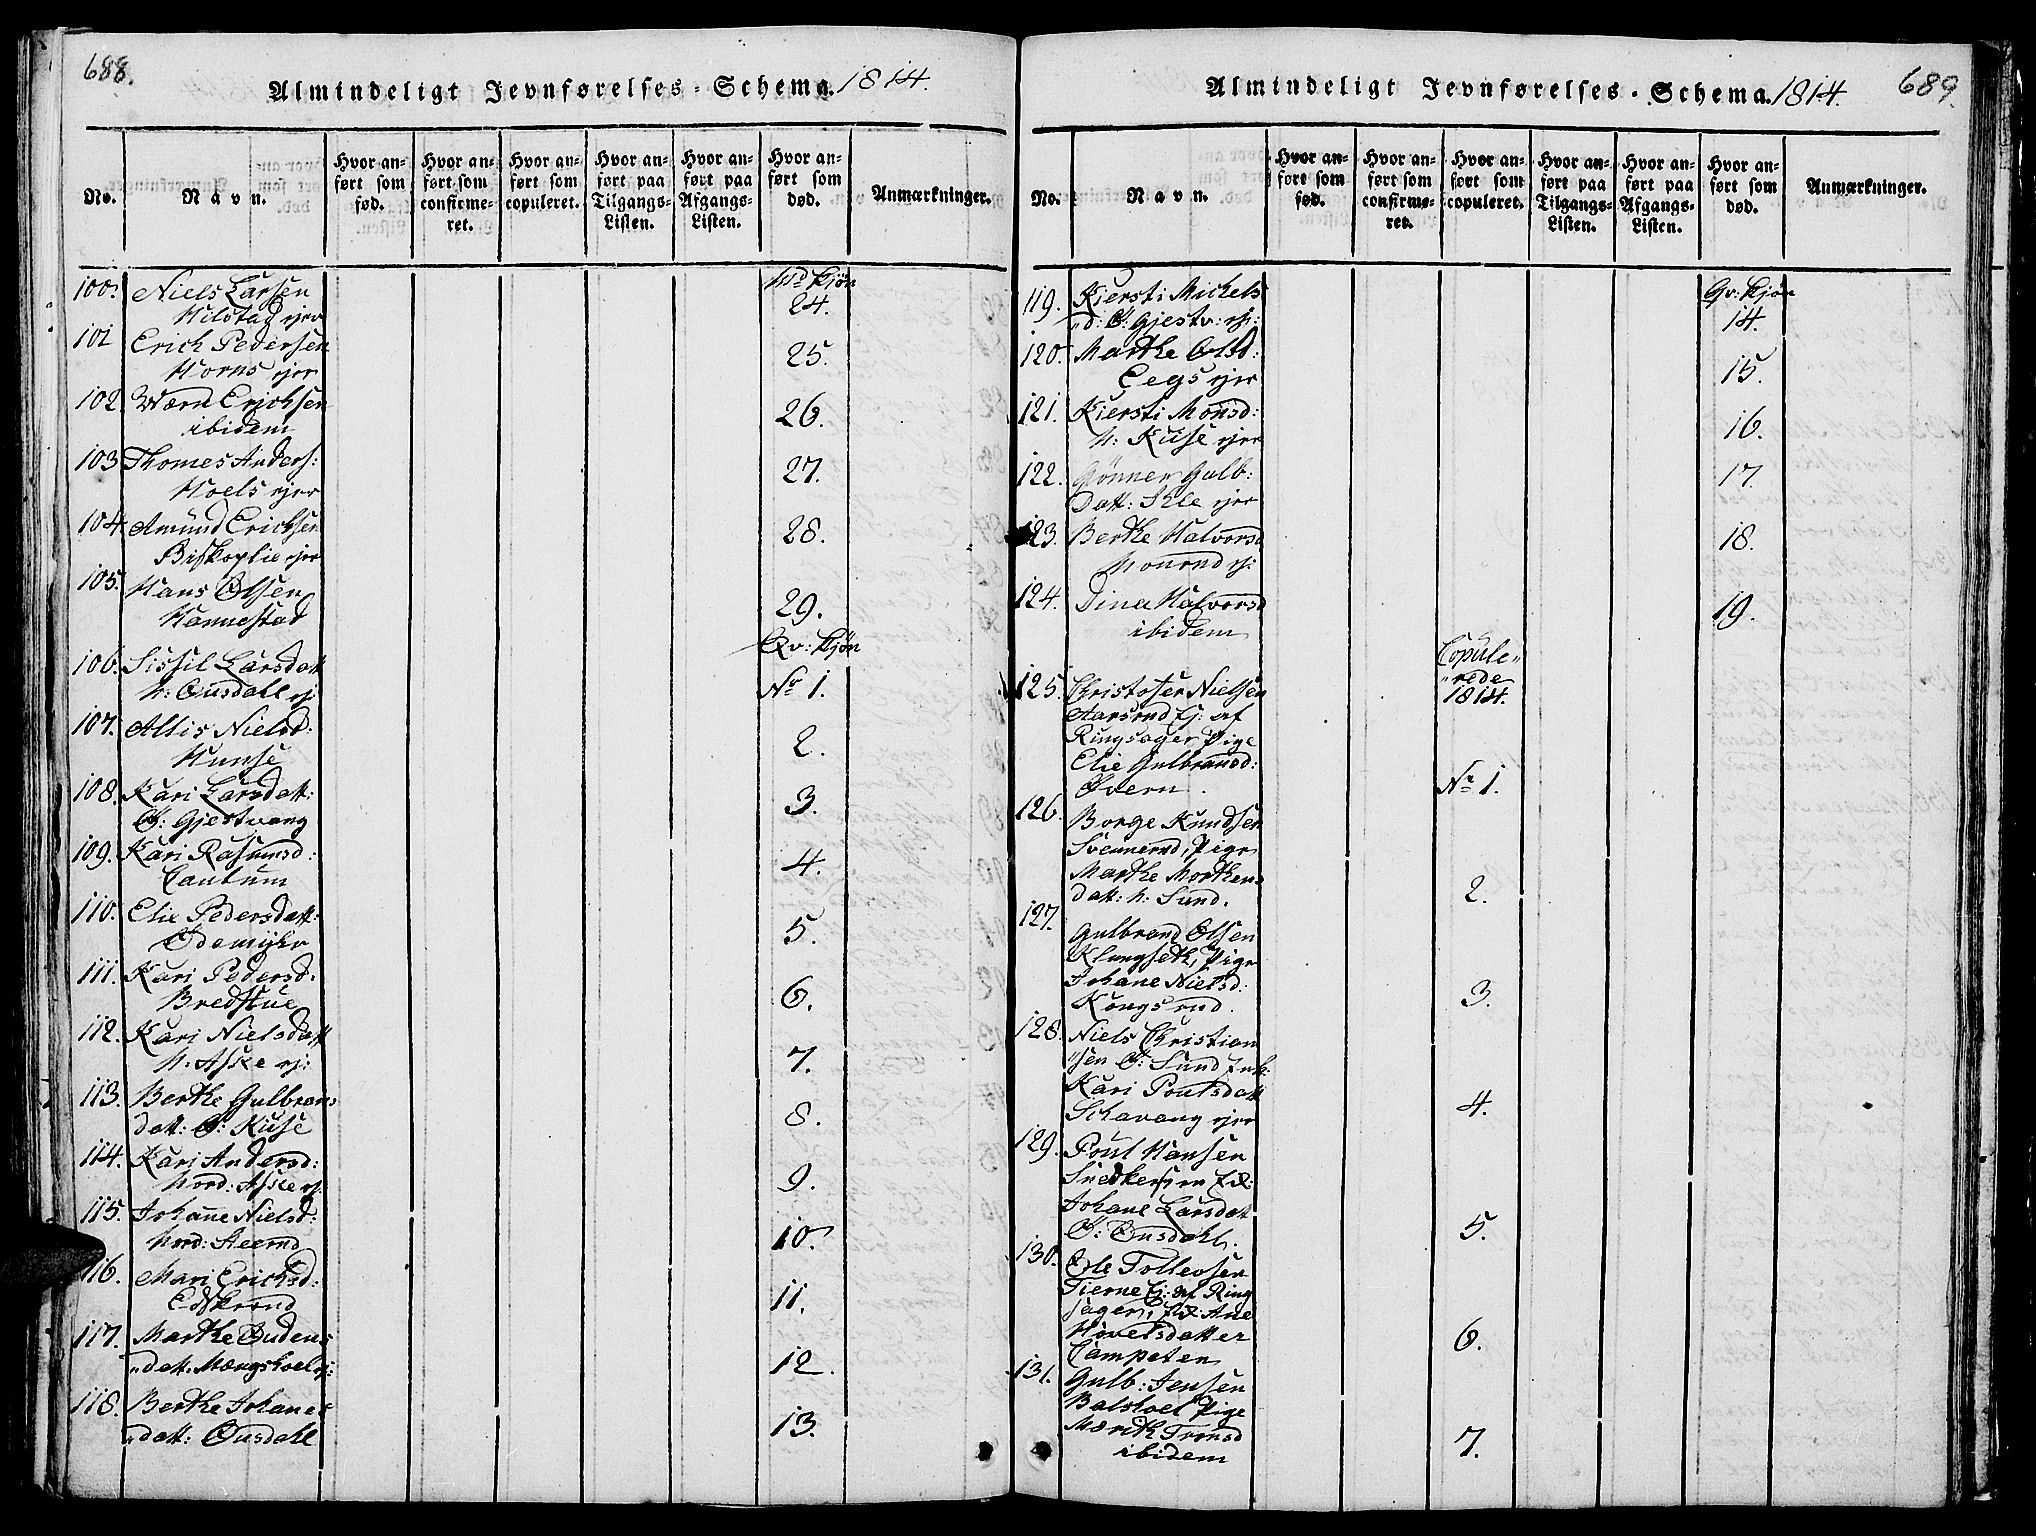 688.
Almindeligt Jevnførelses-Schema. 1814.
No.
Navn.
Hvor anført som fød.
Hvor anført som confirmeret.
Hvor anført som copuleret.
Hvor anført paa Tilgangs-Listen.
Hvor anført paa Afgangs-Listen.
Hvor anført som død.
Anmærkninger.
Md: Kjøn
100. Niels Larsen
Hilstad ejer 24.
101 Erich Pedersen
Horns ejer 25.
102. Erichsen
ibidem 26.
103 Thomes Anders:
Hoels ejer 27.
104. Amund Erichsen
Biskoplie ejer 28.
105. Hans Olsen
Hannestad 29.
Qv: Kjøn
106. Sissil Larsdatt
n: Ousdahl ej: No 1.
107. Allis Nielsd:
Hunse 2.
108. Kari Larsdatt:
Ø: Gjestvang 3.
109. Kari Rasmusd:
Cautum 4.
110. Elie Pedersdatt:
Ødemyhr 5.
111. Kari Pedersd:
Bredstue 6.
112. Kari Nielsdatt
N. Aske ej: 7.
113. Berthe Gulbrans
datt: Ø: Kuse 8.
114. Kari Andersd:
Nord: Aske ej: 9.
115. Johane Nielsd:
Nord: Steernd 10.
116. Mari Erichsd:
Edskrond 11.
117. Marthe Oudens
"datt. Mængshoel ej: 12.
118. Berthe Johanes
"datt: Ousdahl 13.
Almindeligt Jevnførelses-Schema. 1814.
689.
No.
Navn.
Hvor anført som fød.
Hvor anført som confirmeret.
Hvor anført som copuleret.
Hvor anført paa Tilgangs-Listen.
Hvor anført paa Afgangs-Listen.
Hvor anført som død.
Anmærkninger.
Qv: Kjøn
119. Kiersti Mickels
"d: Ø: Gjestv: ej: 14.
120. Marthe Olsd:
Eegs ejer 15.
121. Kiersti Monsd:
n: Kuse ejer 16.
122. Gönner Gulb:
Datt: Skle ejer 17.
123. Berthe Halvorsd
Honrnd ej: 18.
124. Dina Halvorsd
ibidem 19.
Copule"
"rede
1814.
125. Christofer Nielsen
Aarsrud Ej: af
Ringsager, Pige
Elie Gulbransd:
Øvern. No 1.
126. Borge Knudsen
Svennerud, Pige
Marthe Morthens
datt: n: Sund. 2.
127. Gulbrand Olsen
Klungseth, Pige
Johane Nielsd:
Kongsrud. 3.
128. Niels Christian
"sen Ø: Sund Enk:
Kari Poulsdatt
Schavang ejer 4.
129. Poul Hansen
Snedkersven
Johane Larsdatt
Ø: Ousdahl. 5.
130. Ole Tollevsen
Tierne Ej: af Ring
sager, Ane
Hovelsdatter
Campeten 6.
131. Gulb: Jensen
Balshoel Pige
Marith Tronsd
ibidem 7.